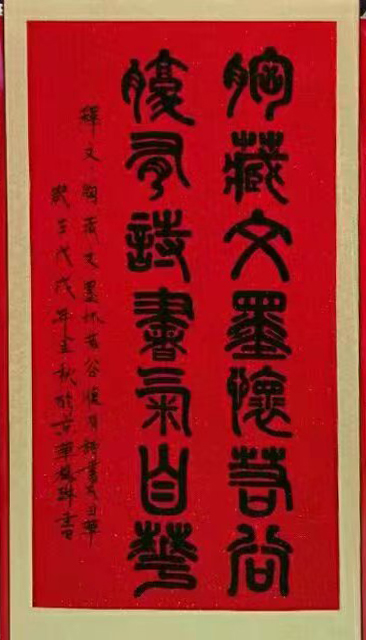 胸藏文墨懷若谷
腹有詩書氣自華
釋文 胸藏文墨怀若谷腹有詩書气自華
歲在戊戌年金秋於京華書